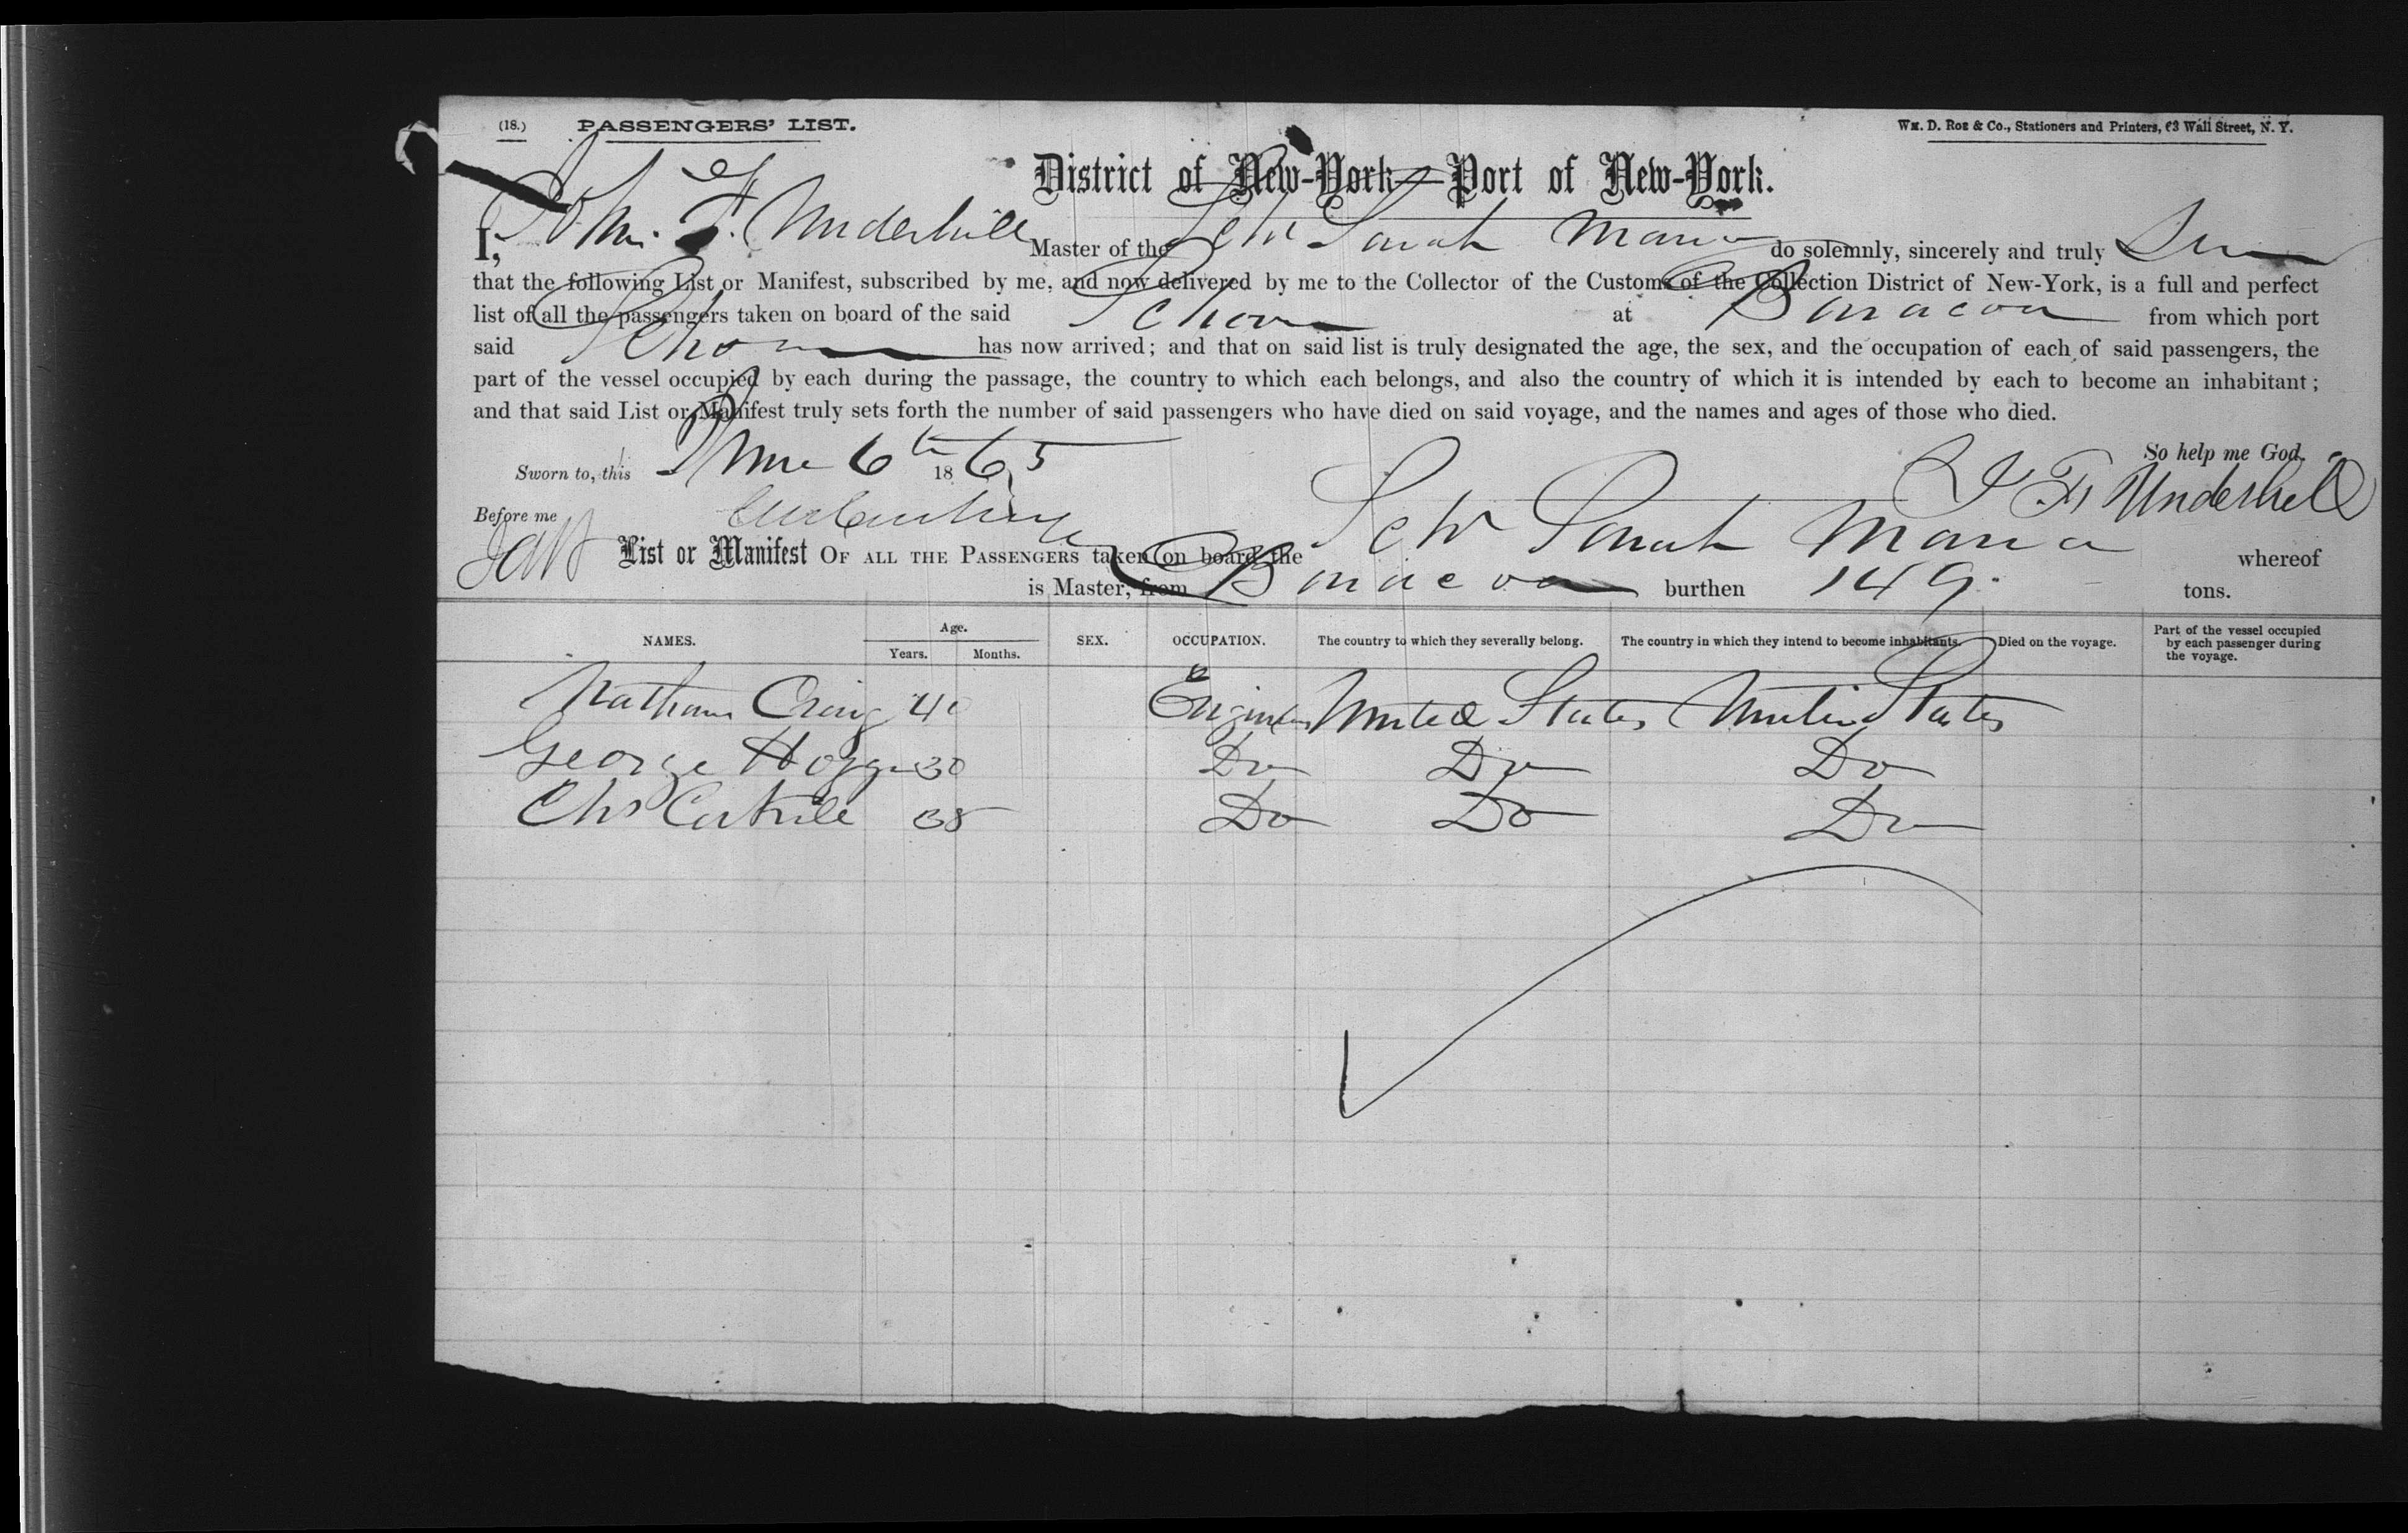 (18.) PASSENGERS' LIST. Wm. D. Roe & Co., Stationers and Printers, 63 Wall Street, N. Y.
District of New-York—Port of New-York.
I, John F. Underhill Master of the Schr Sarah Maria do solemnly, sincerely and truly
that the following List or Manifest, subscribed by me, and now delivered by me to the Collector of the Customs of the Collection District of New-York, is a full and perfect
list of all the passengers taken on board of the said Schour at Bonacoa from which port
said Schour has now arrived; and that on said list is truly designated the age, the sex, and the occupation of each of said passengers, the
part of the vessel occupied by each during the passage, the country to which each belongs, and also the country of which it is intended by each to become an inhabitant;
and that said List or Manifest truly sets forth the number of said passengers who have died on said voyage, and the names and ages of those who died.
So help me God.
Sworn to, this June 6th 1865 J F Underhill
Before me
List or Manifest OF ALL THE PASSENGERS taken on board the Schr Sarah Maria whereof
is Master, from Bonacoa burthen 149. tons.
NAMES. Age. Years. Months. SEX. OCCUPATION. The country to which they severally belong. The country in which they intend to become inhabitants. Died on the voyage. Part of the vessel occupied by each passenger during the voyage.
Nathan Craig 40 Engineer United States United States
George 30 Do Do Do
Chs 38 Do Do Do